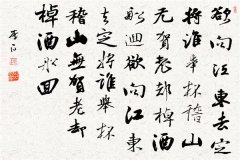 欲向江東去定
將誰舉杯稽山
无賀老却棹酒
船迴欲向江東
去定將誰舉杯
稽山無賀老却
棹酒船回